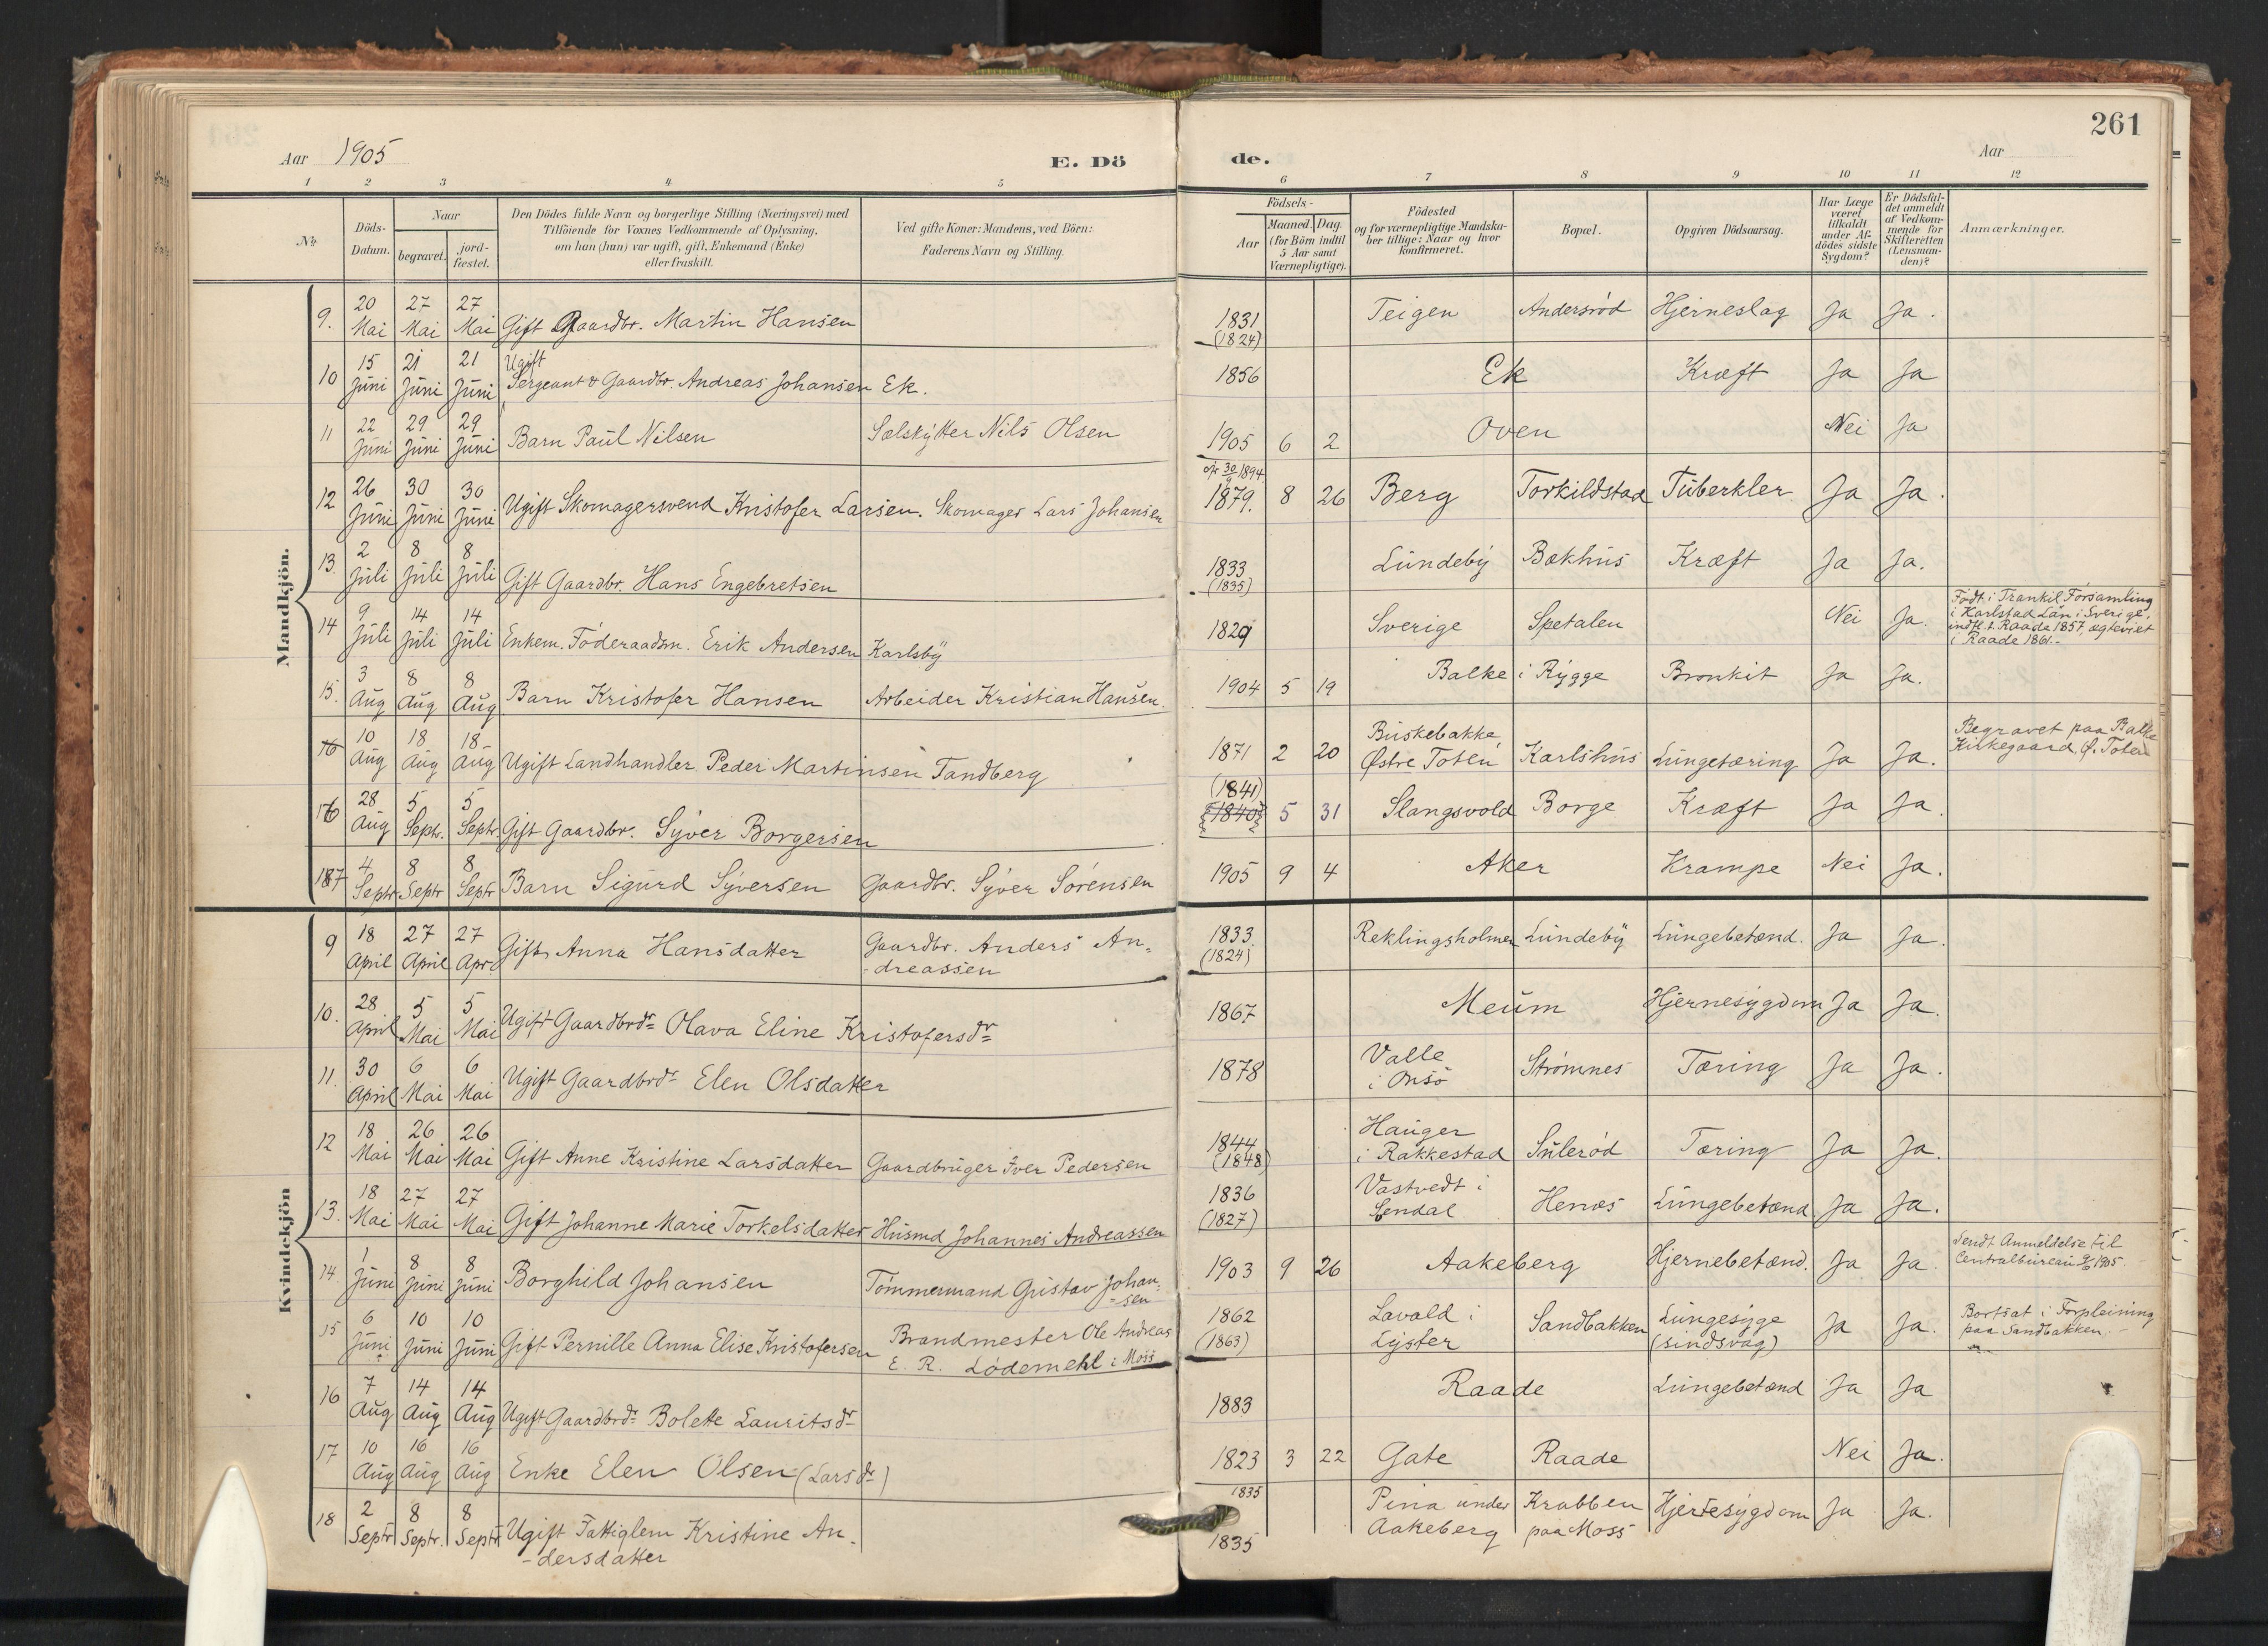 261
Aar 1905
E. Dö
de.
Aar
1 2 3 4 5 6 7 8 9 10 11 12
No.
Döds-Datum.
Naar
begravet.
jord-fæstet.
Den Dödes fulde Navn og borgerlige Stilling (Næringsvei) med
Tilföiende for Voxnes Vedkommende af Oplysning,
om han (hun) var ugift, gift, Enkemand (Enke)
eller fraskilt.
Ved gifte Koner: Mandens, ved Börn:
Faderens Navn og Stilling.
Födsels-
Aar
Maaned. Dag.
(for Börn indtil
5 Aar samt
Værnepligtige).
Födested
og for værnepligtige Mandska-
ber tillige: Naar og hvor
konfirmeret.
Bopæl.
Opgiven Dödsaarsag.
Har Læge
været
tilkaldt
under Af-
dödes sidste
Sygdom?
Er Dödsfal-
det anmeldt
af Vedkom-
mende for
Skifteretten
(Lensman-
den)?
Anmærkninger.
Mandkjön.
9. 20 Mai 27 Mai 27 Mai Gift Gaardbr. Martin Hansen 1831 (1824) Teigen Andersröd Hjerneslag Ja Ja.
10 15 Juni 21 Juni 21 Juni Ugift Sergeant & Gaardbr. Andreas Johansen Ek. 1856 Ek Kræft Ja Ja
11 22 Juni 29 Juni 29 Juni Barn Paul Nilsen Sælskytter Nils Olsen 1905 6 2 Oven Nei Ja
12 26 Juni 30 Juni 30 Juni Ugift Skomagersvend Kristofer Larsen. Skomager Lars Johansen 30/9 1894 1879. 8 26 Berg Torkildstad Tuberkler Ja Ja.
13. 2 Juli 8 Juli 8 Juli Gift Gaardbr. Hans Engebretsen 1833 (1835) Lundeby Bækhus Kræft Ja Ja.
14 9 Juli 14 Juli 14 Juli Enkem. Föderaadsm. Erik Andersen Karlsby 1829 Sverige Spetalen Nei Ja. Födt i Trankil Forsamling
i Karlstad Län i Sverige,
indfl. t. Raade 1857, ægteviet
i Raade 1861.-
15. 3 Aug 8 Aug 8 Aug Barn Kristofer Hansen Arbeider Kristian Hansen. 1904 5 19 Balke i Rygge Bronkit Ja Ja.
16 10 Aug 18 Aug 18 Aug Ugift Landhandler Peder Martinsen Tandberg 1871 2 20 Buskebakke Østre Toten Karlshus Lungetæring Ja Ja. Begravet paa Balke
Kirkegaard, Ø. Toten
16 28 Aug 5 Septr. 5 Septr. Gift Gaardbr. Syver Borgersen (1841) 1840 5 31 Slangsvold Borge Kræft Ja Ja.
17 4 Septr 8 Septr 8 Septr Barn Sigurd Syversen Gaardbr. Syver Sörensen 1905 9 4 Aker Krampe Nei Ja.
Kvindekjön
9 18 April 27 April 27 Apr. Gift Anna Hansdatter Gaardbr. Anders An-
-dreassen 1833 (1824) Reklingsholmen Lundeby Lungebetænd. Ja Ja.
10. 28 April 5 Mai 5 Mai Ugift Gaardbrdr Olava Eline Kristofersdr 1867 Meum Hjernesygdom Ja Ja.
11. 30 April 6 Mai 6 Mai Ugift Gaardbrdr Elen Olsdatter 1878 Valle i Onsö Strömnes Tæring Ja Ja.
12 18 Mai 26 Mai 26 Mai Gift Anne Kristine Larsdatter Gaardbruger Iver Pedersen 1844 (1848) Hauger i Rakkestad Sulerød Tæring Ja Ja.
13. 18 Mai 27 Mai 27 Mai Gift Johanne Marie Torkelsdatter Husmd Johannes Andreassen 1836 (1827) Vastvedt i Lendal Henæs Lungebetænd Ja Ja.
14. 1 Juni 8 Juni 8 Juni Borghild Johansen Tömmermand Gustav Johan-
-sen 1903 9 26 Aakeberg Hjernebetænd. Ja Ja. Sendt Anmeldelse til
Centralbureau 9/6 1905.
15 6 Juni 10 Juni 10 Juni Gift Pernille Anna Elise Kristofersen Brandmester Ole Andreas
E. R. Lödemehl i Moss 1862 (1863) Lavold i Lyster Sandbakken Lungesyge (sindsvag) Ja Ja. Bortsat i Forpleining
paa Sandbakken.-
16 7 Aug 14 Aug 14 Aug Ugift Gaardbrdr Bolette Lauritsdr 1883 Raade Lungebetænd Ja Ja
17 10 Aug 16 Aug 16 Aug Enke Elen Olsen (Larsdr) 1823 3 22 Gate Raade Nei Ja.
18 2 Septr 8 Septr. 8 Septr Ugift Fattiglem Kristine An-
-dersdatter 1835 1835 Pina under Aakeberg Krabben paa Moss Hjertesygdom Ja Ja.